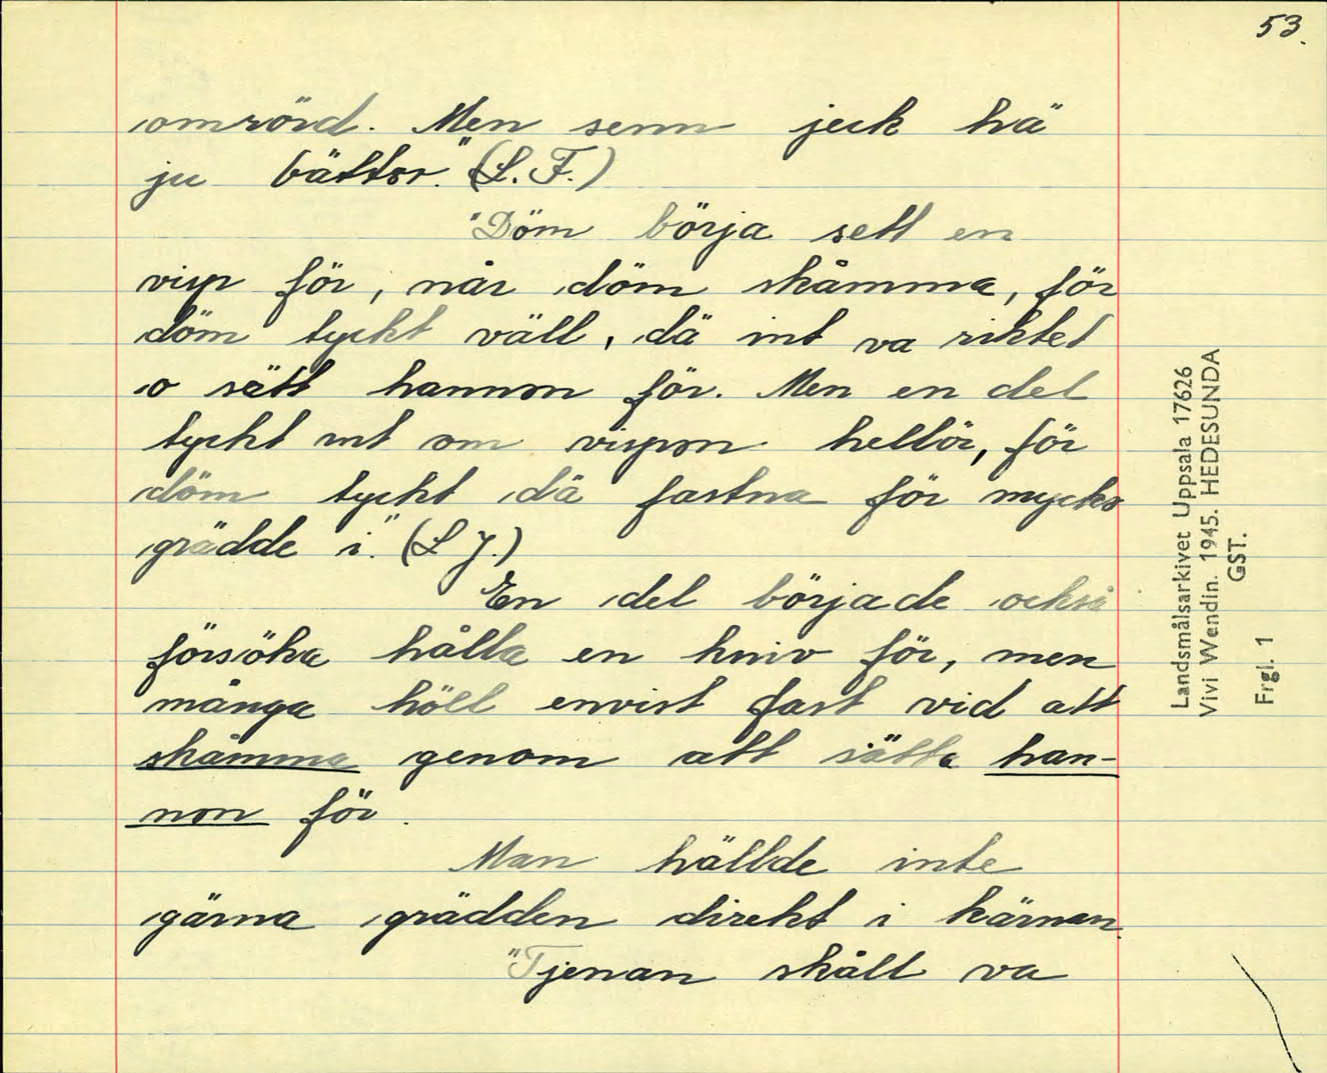 53.
omrörd. Men senn jeck hä
ju bättor." (L. F.)
"Döm börja sett en
visp för, når döm skåmma, för
döm tyckt väll, dä int va riktet
o sätt hannon för. Men en del
tyckt int om vispon hellör, för
döm tyckt dä fastna för mycke
grädde i." (L J.)
En del började också
försöka hålla en kniv för, men
många höll envist fast vid att
skåmma genom att sätta han-
non för.
Man hällde inte
gärna grädden direkt i kärnan.
"Tjenan skåll va
Landsmålsarkivet Uppsala 17626
Vivi Wendin. 1945. HEDESUNDA
GST.
Frgl. 1